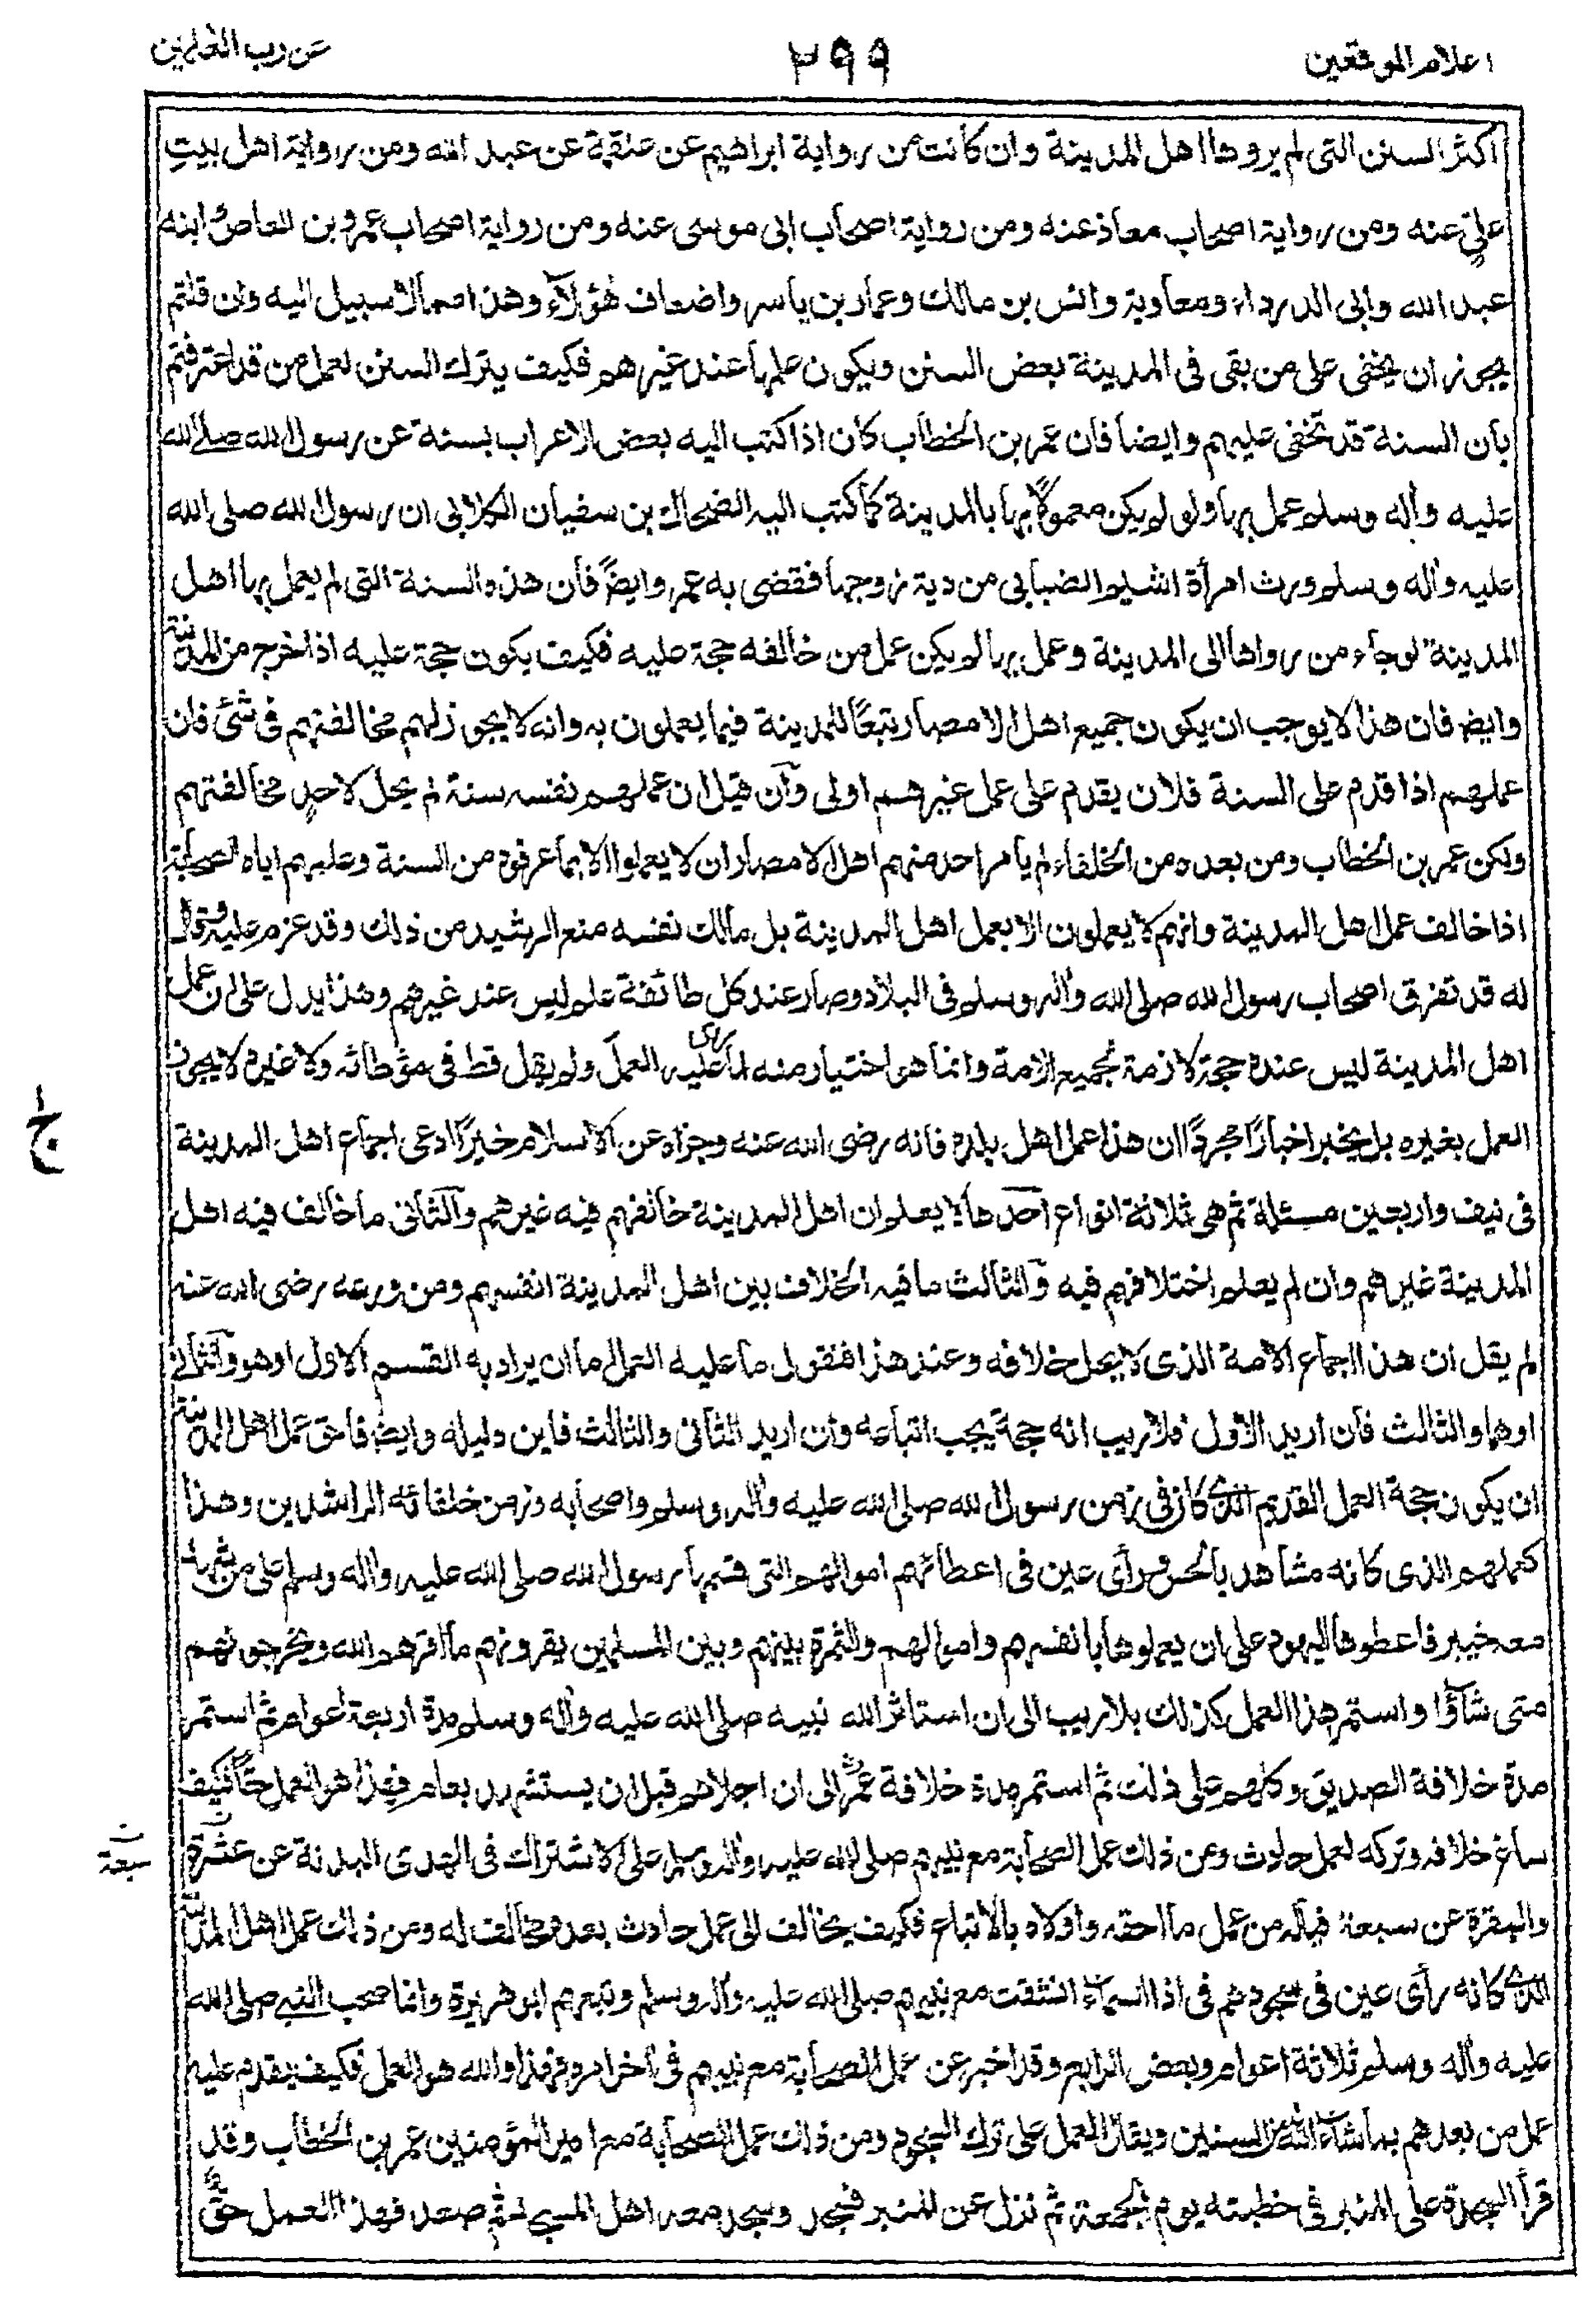 اعلام الموقعين
٢٩٩
عن رب العلمين
اكثر السنن التى لم يروها اهل المدينة وان كانت من رواية ابراهيم عن علقمة عن عبد الله ومن رواية اهل بيت
علي عنه ومن رواية اصحاب معاذ عنه ومن رواية اصحاب ابى موسى عنه ومن رواية اصحاب عمرو بن العاص وابنه
عبد الله وابى الدرداء ومعاوية وانس بن مالك وعمار بن ياسر واضعاف هؤلاء وهذا مما لا سبيل اليه وان قلتم
يجوز ان يخفى على من بقى فى المدينة بعض السنن ويكون علمها عند غيرهم فكيف يترك السنن لعمل من قد اعترفتم
بان السنة قد تخفى عليهم وايضا فان عمر بن الخطاب كان اذا كتب اليه بعض الاعراب بسنة عن رسول الله صلى الله
عليه وأله وسلم عمل بها ولو لم يكن معمولا بها بالمدينة كما كتب اليه الضحاك بن سفيان الكلابى ان رسول الله صلى الله
عليه وأله وسلم ورث امرأة اشيم الضبابى من دية زوجها فقضى به عمر وايضًا فان هذه السنة التى لم يعمل بها اهل
المدينة لو جاء من رواها الى المدينة وعمل بها لم يكن عمل من خالفه حجة عليه فكيف يكون حجة عليه اذا خرج من المدينة
وايضا فان هذا لا يوجب ان يكون جميع اهل الامصار تبعًا للمدينة فيما يعملون به وانه لا يجوز لهم مخالفتهم فى شئ فان
عملهم اذا قدم على السنة فلان يقدم على عمل غيرهم اولى وان قيل ان عملهم نفسه سنة لم يحل لاحد مخالفتهم
ولكن عمر بن الخطاب ومن بعده من الخلفاء لم يأمر احد منهم اهل الامصار ان لا يعملوا الا بما عرفوه من السنة وعلمهم اياه الصحابة
اذا خالف عمل اهل المدينة وانهم لا يعملون الا بعمل اهل المدينة بل مالك نفسه منع الرشيد من ذلك وقد عزم عليه وقال
له قد تفرق اصحاب رسول الله صلى الله وأله وسلم فى البلاد وصار عند كل طائفة علم ليس عند غيرهم وهذا يدل على ان عمل
اهل المدينة ليس عنده حجة لازمة لجميع الامة وانما هو اختيار منه لما رأى عليه العمل ولم يقل قط فى مؤطائه ولا غيره لا يجوز
العمل بغيره بل يخبر اخبارًا مجردًا ان هذا عمل اهل بلده فانه رضى الله عنه وجزاه عن الاسلام خيرًا ادعى اجماع اهل المدينة
فى نيف واربعين مسئلة ثم هى ثلاثة انواع احدها لا يعلم ان اهل المدينة خالفهم فيه غيرهم والثانى ما خالف فيه اهل
المدينة غيرهم وان لم يعلم اختلافهم فيه والثالث ما فيه الخلاف بين اهل المدينة انفسهم ومن ورعه رضى الله عنه
لم يقل ان هذا اجماع الامة الذى لا يحل خلافه وعند هذا فنقول ما عليه العمل اما ان يراد به القسم الاول او هو والثانى
او هما والثالث فان اريد الاول فلا ريب انه حجة يجب اتباعه وان اريد الثانى والثالث فاين دليله وايضا فاحق عمل اهل المدينة
ان يكون حجة العمل القديم الذى كان فى زمن رسول الله صلى الله عليه وأله وسلم واصحابه وزمن خلفائه الراشدين وهذا
كعملهم الذى كانه مشاهد بالحس ورأى عين فى اعطائهم اموالهم التى قسمها رسول الله صلى الله عليه وأله وسلم على من شهد
معه خيبر فاعطوها اليهود على ان يعملوها بانفسهم واموالهم والثمرة بينهم وبين المسلمين يقرونهم ما اقرهم الله ويخرجونهم
متى شاؤا واستمر هذا العمل كذلك بلا ريب الى ان استاثر الله نبيه صلى الله عليه وأله وسلم مدة اربعة اعوام ثم استمر
مدة خلافة الصديق وكلهم على ذلك ثم استمر مدة خلافة عمر الى ان اجلاهم قبل ان يستشهد بعام فهذا هو العمل حقا فكيف
ساغ خلافه وتركه لعمل حادث ومن ذلك عمل الصحابة مع نبيهم صلى الله عليه وأله وسلم على الاشتراك فى الهدى البدنة عن عشرة
والبقرة عن سبعة فياله من عمل ما احقه واولاه بالاتباع فكيف يخالف الى عمل حادث بعده مخالف له ومن ذلك عمل اهل المدينة
الذى كانه رأى عين فى سجودهم فى اذا السماء انشقت مع نبيهم صلى الله عليه وأله وسلم وتبعهم ابو هريرة وانما صحب النبى صلى الله
عليه وأله وسلم ثلاثة اعوام وبعض الرابع وقد اخبر عن عمل الصحابة مع نبيهم فى أخر امره فهذا والله هو العمل فكيف يقدم عليه
عمل من بعدهم بما شاء الله من السنين ويقال العمل على ترك السجود ومن ذلك عمل الصحابة مع امير المؤمنين عمر بن الخطاب وقد
قرأ السجدة على المنبر فى خطبته يوم الجمعة ثم نزل عن المنبر فسجد وسجد معه اهل المسجد ثم صعد فهذا العمل حق
ج ١
ن سبعة